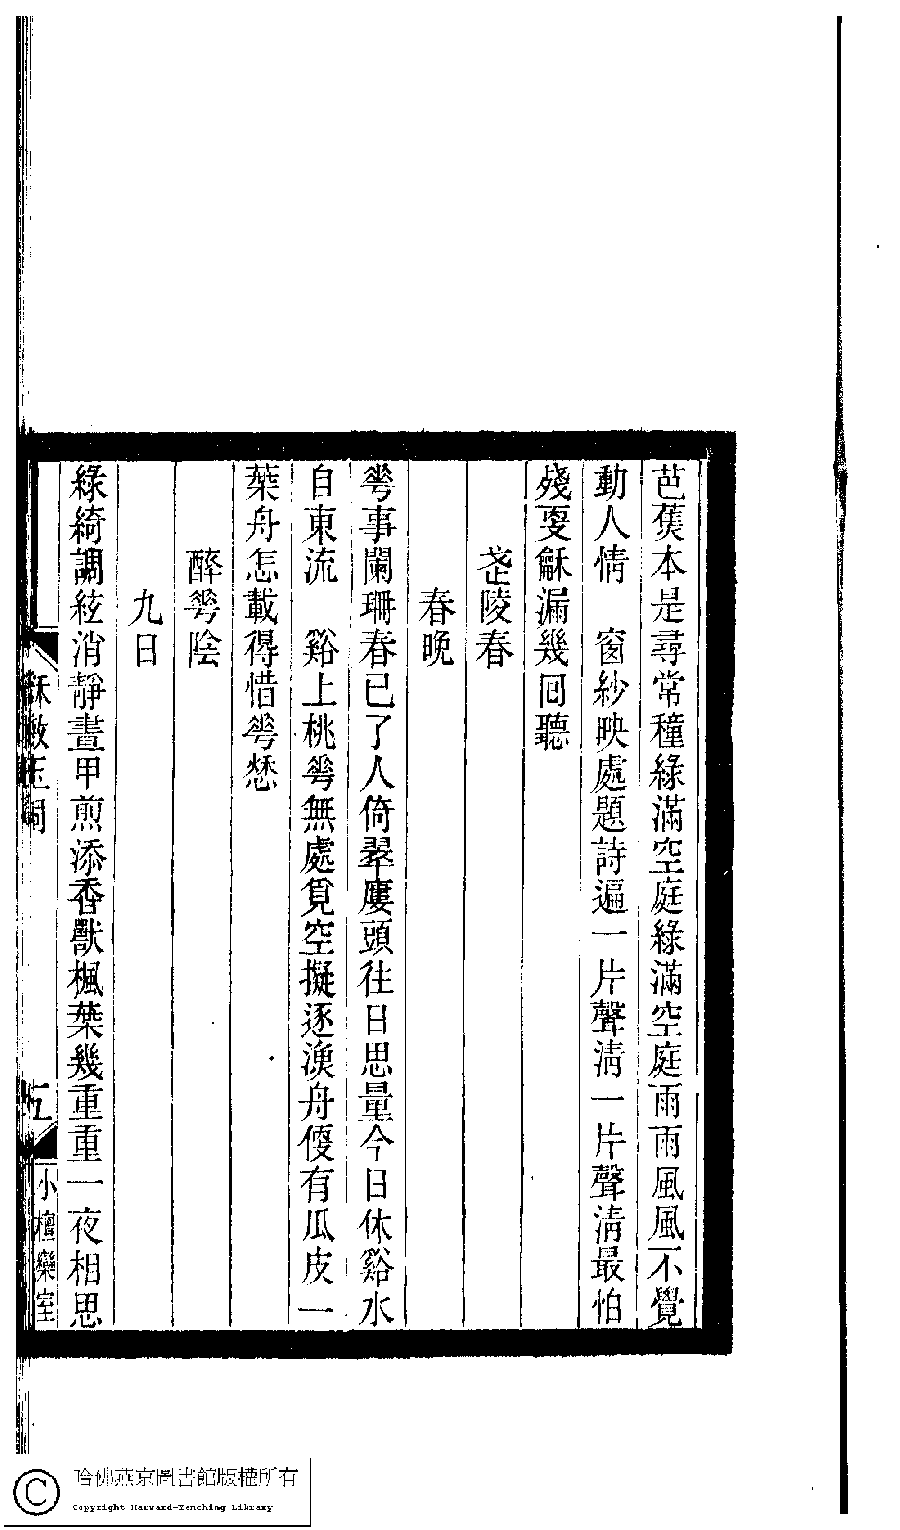 芭蕉本是尋常種綠滿空庭綠滿空庭雨雨風風不覺
動人情　窗紗映處題詩遍一片聲淸一片聲淸最怕
殘更穌漏幾回聽
武陵春
春晚
蕐事闌珊春已了人倚翠廔頭往日思量今日休谿水
自東流　谿上桃蕐無處覓空擬逐漁舟便有瓜皮一
葉舟怎載得惜蕐愁
醉蕐陰
九日
綠綺調絃消靜晝甲煎添香獸楓葉幾重重一夜相思
漱玉詞
五
小檀欒室
哈佛燕京圖書館版權所有
Copyright Harvard-Yenching Library